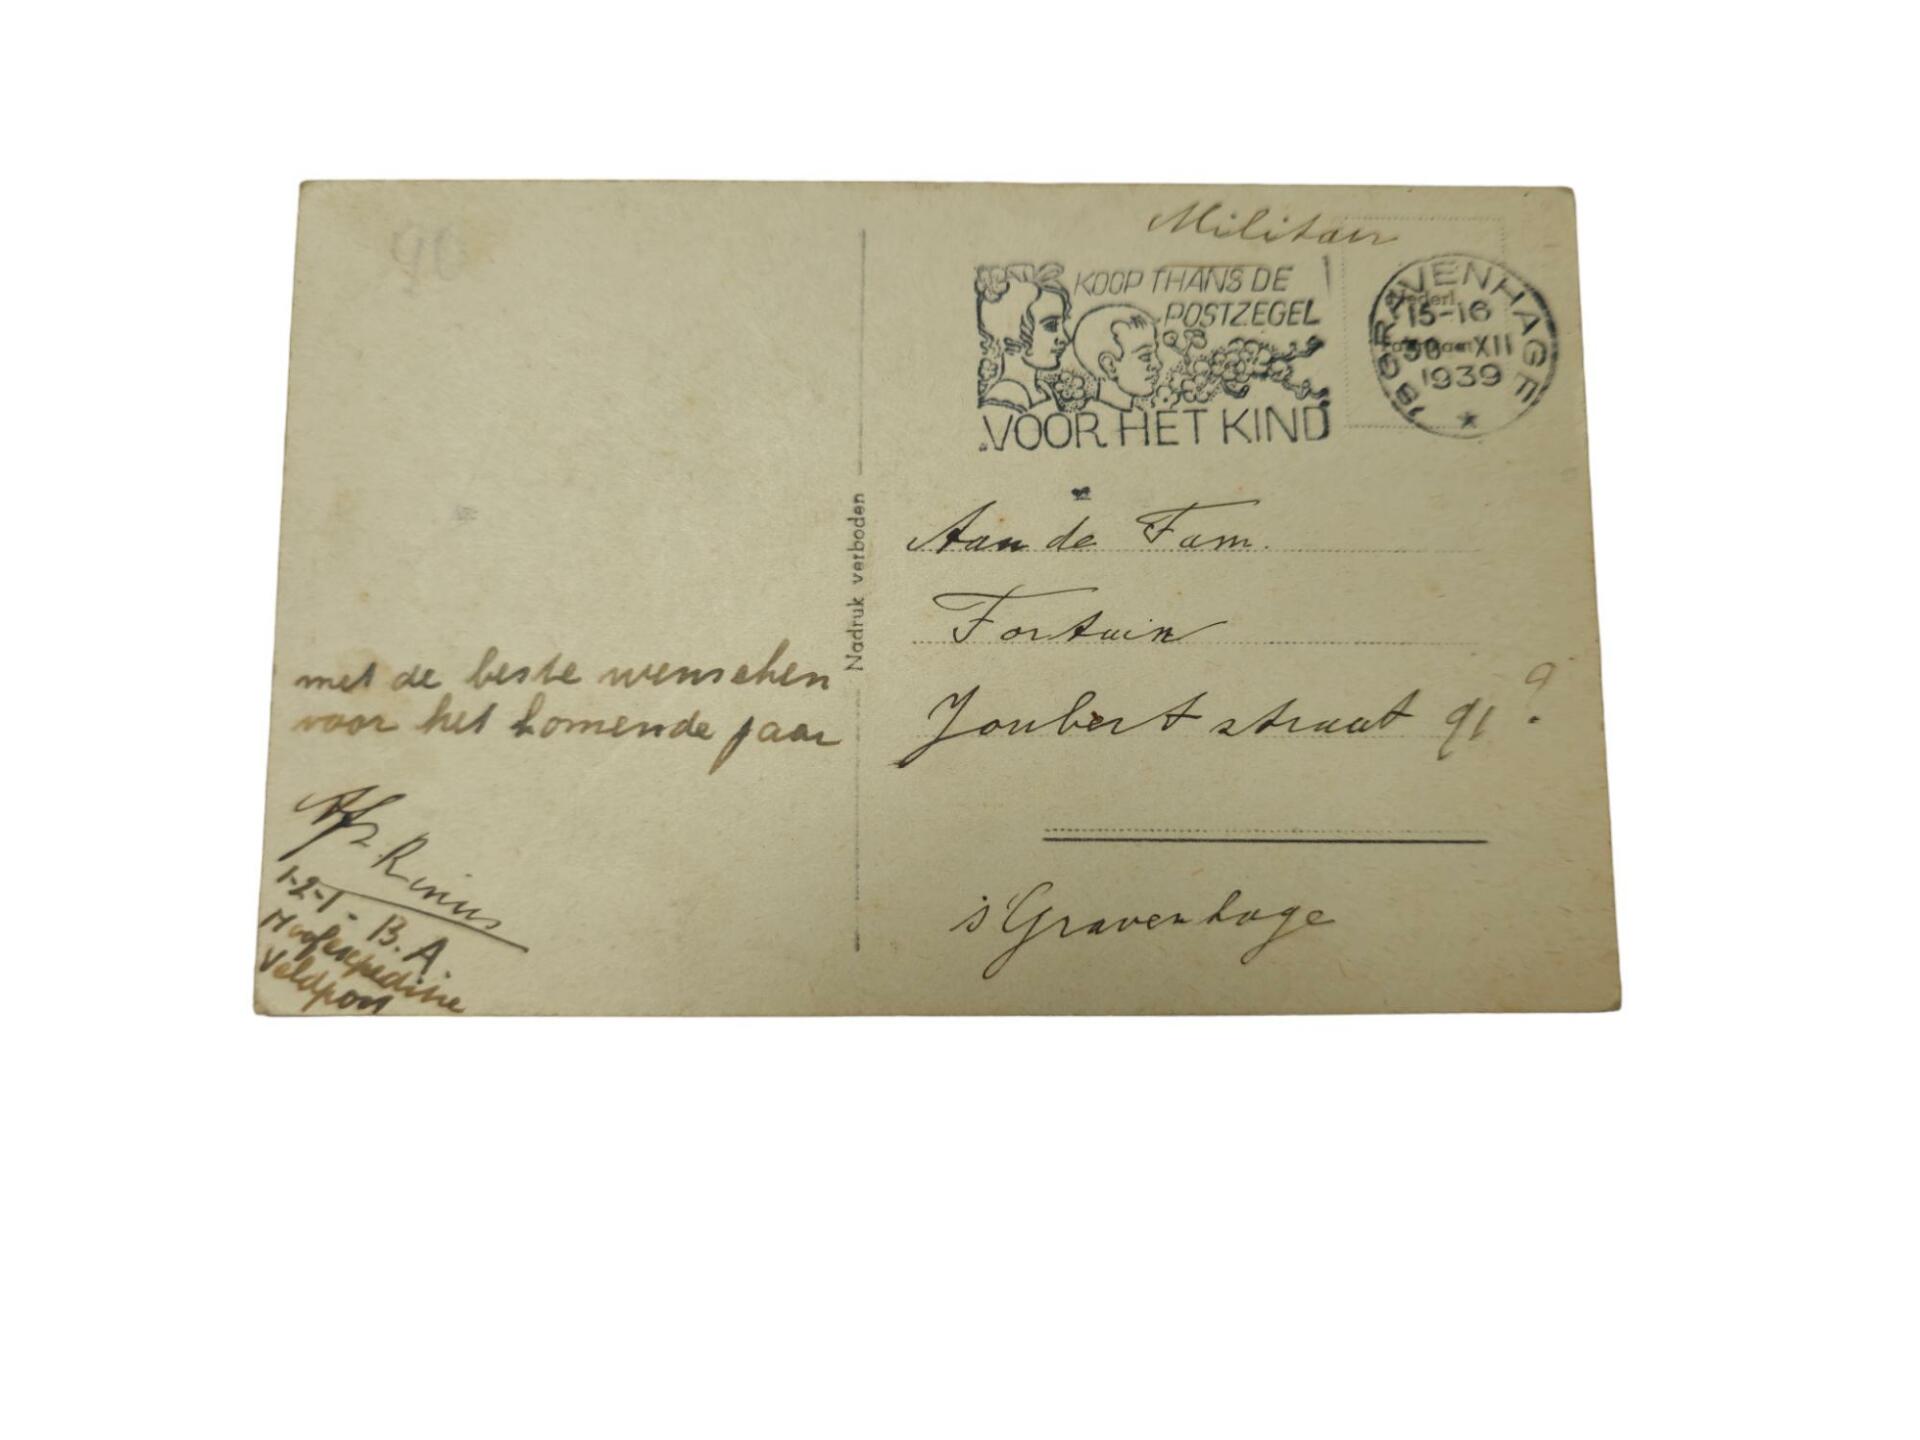 90
met de beste wenschen
voor het komende jaar
Afz Rinus
1-2-1- B.A.
Hoofexpeditie
Veldpost
Nadruk verboden
Militair
KOOP THANS DE
POSTZEGEL
VOOR HET KIND
'SGRAVENHAGE
Nederl.
15-16
30 XII
1939
Aan de Fam.
Fortuin
Joubertstraat 91?
's Gravenhage